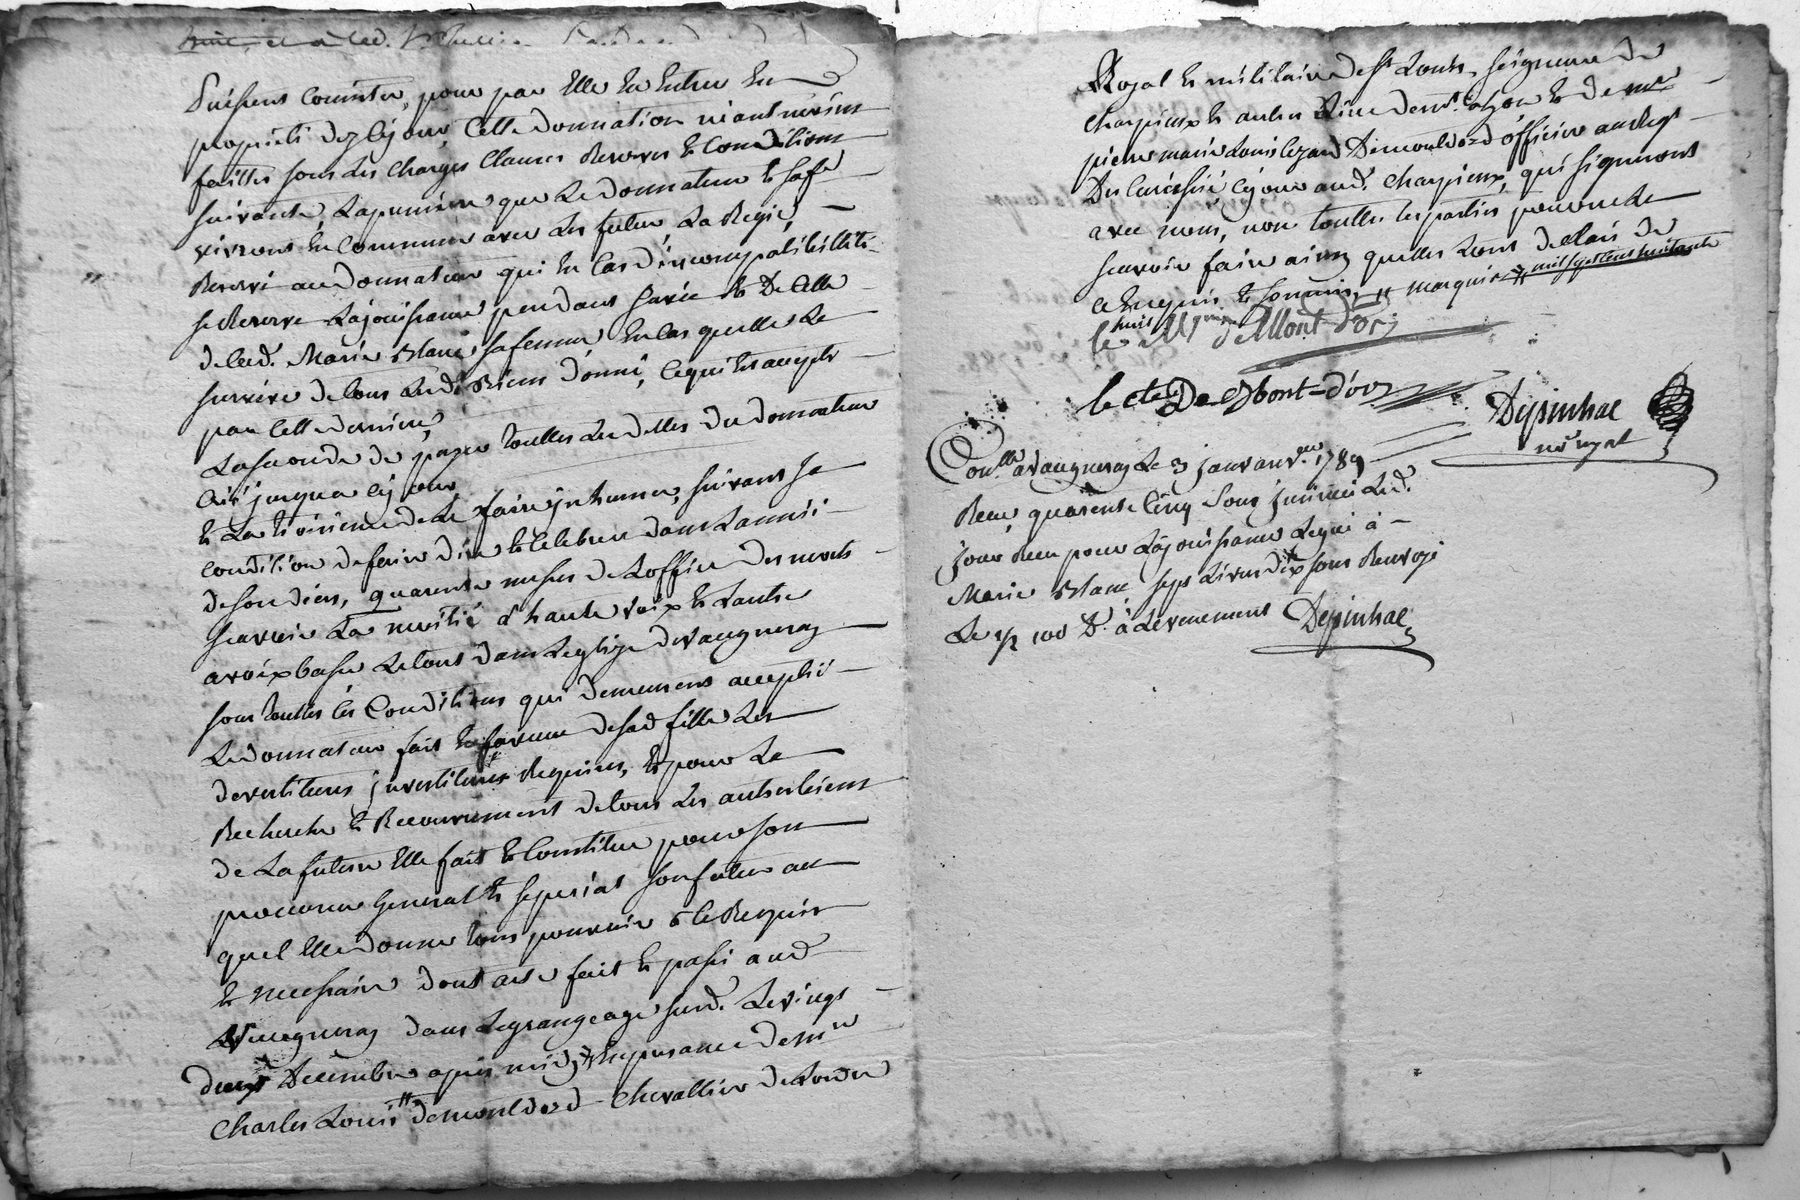 puissent Consister, pour par Elle En Entrer En
propriété dezcejour, Cette donnation néantmoins
faitte sous les Charges Clauses Reserves Et Conditions
suivante, La premiere que Le donnateur Et sa fe
vivront En Commun avec Les futur, La Regie,
Reservé au donnateur qui En Cas d'incompatibillité
se Reserve La jouissance pendant sa vie Et De Celle
de lad. Marie blanc sa femme En Cas quelle Le
survive de tous Led. Biens donné, Ce qui Est accepté
par Cette derniere,
La seconde de payer touttes Les dettes du donnateur
Crée jusqua cejour
Et La troisieme de Le faire jnhumer, suivant sa
condition de faire dire Et Celebrer dans Lannée
de son deces, quarente messes de Loffice des morts
scavoir La moitié a haute voix Et Lautre
a voix basse Le tout dans Leglize de vaugneray
sous touttes les Conditions qui demeurent acceptée
Le donnateur fait En faveur de sad. fille Les
devestitures jnvestitures Requises, Et pour La
Recherche Et Recouvrement de tous Les autres biens
de La future Elle fait Et Constitue pour son
procureur general Et special son futur au
quel Elle donne tous pouvoir a ce Requis
Et necessaire dont acte fait Et passé aud.
Vaugneray dans Legrangeage susd. Le vingt
deux Decembre apres midy En presence de mre
Charles Louis demontdord Chevallier de Lordre
Royal Et militaire de St Louis, seigneur de
Charpieux Et autres Lieux demt. a Lyon Et de mre
pierre marie Louis Demontdord officier au Regt
De Cavallerie, cejour aud. Charpieux, qui signeront
avec nous, non touttes les parties pour ne Le
scavoir faire ainsy quelles Lont declaré de
ce Enquis Et sommés, marquis mil sept cent huitante
huit
le Mis de Mont d'or
le cte De Mont-d'or
Depinhac
nore royal
Conllé a Vaugneray Le 3 janvier 1789
Recu quarente Cinq sous jnsinué Led.
jour Recu pour La jouissance Leguée à
Marie blanc sept Livres dix sous Renvoyé
Le 1/2 100 Dr. à Levenement Depinhac